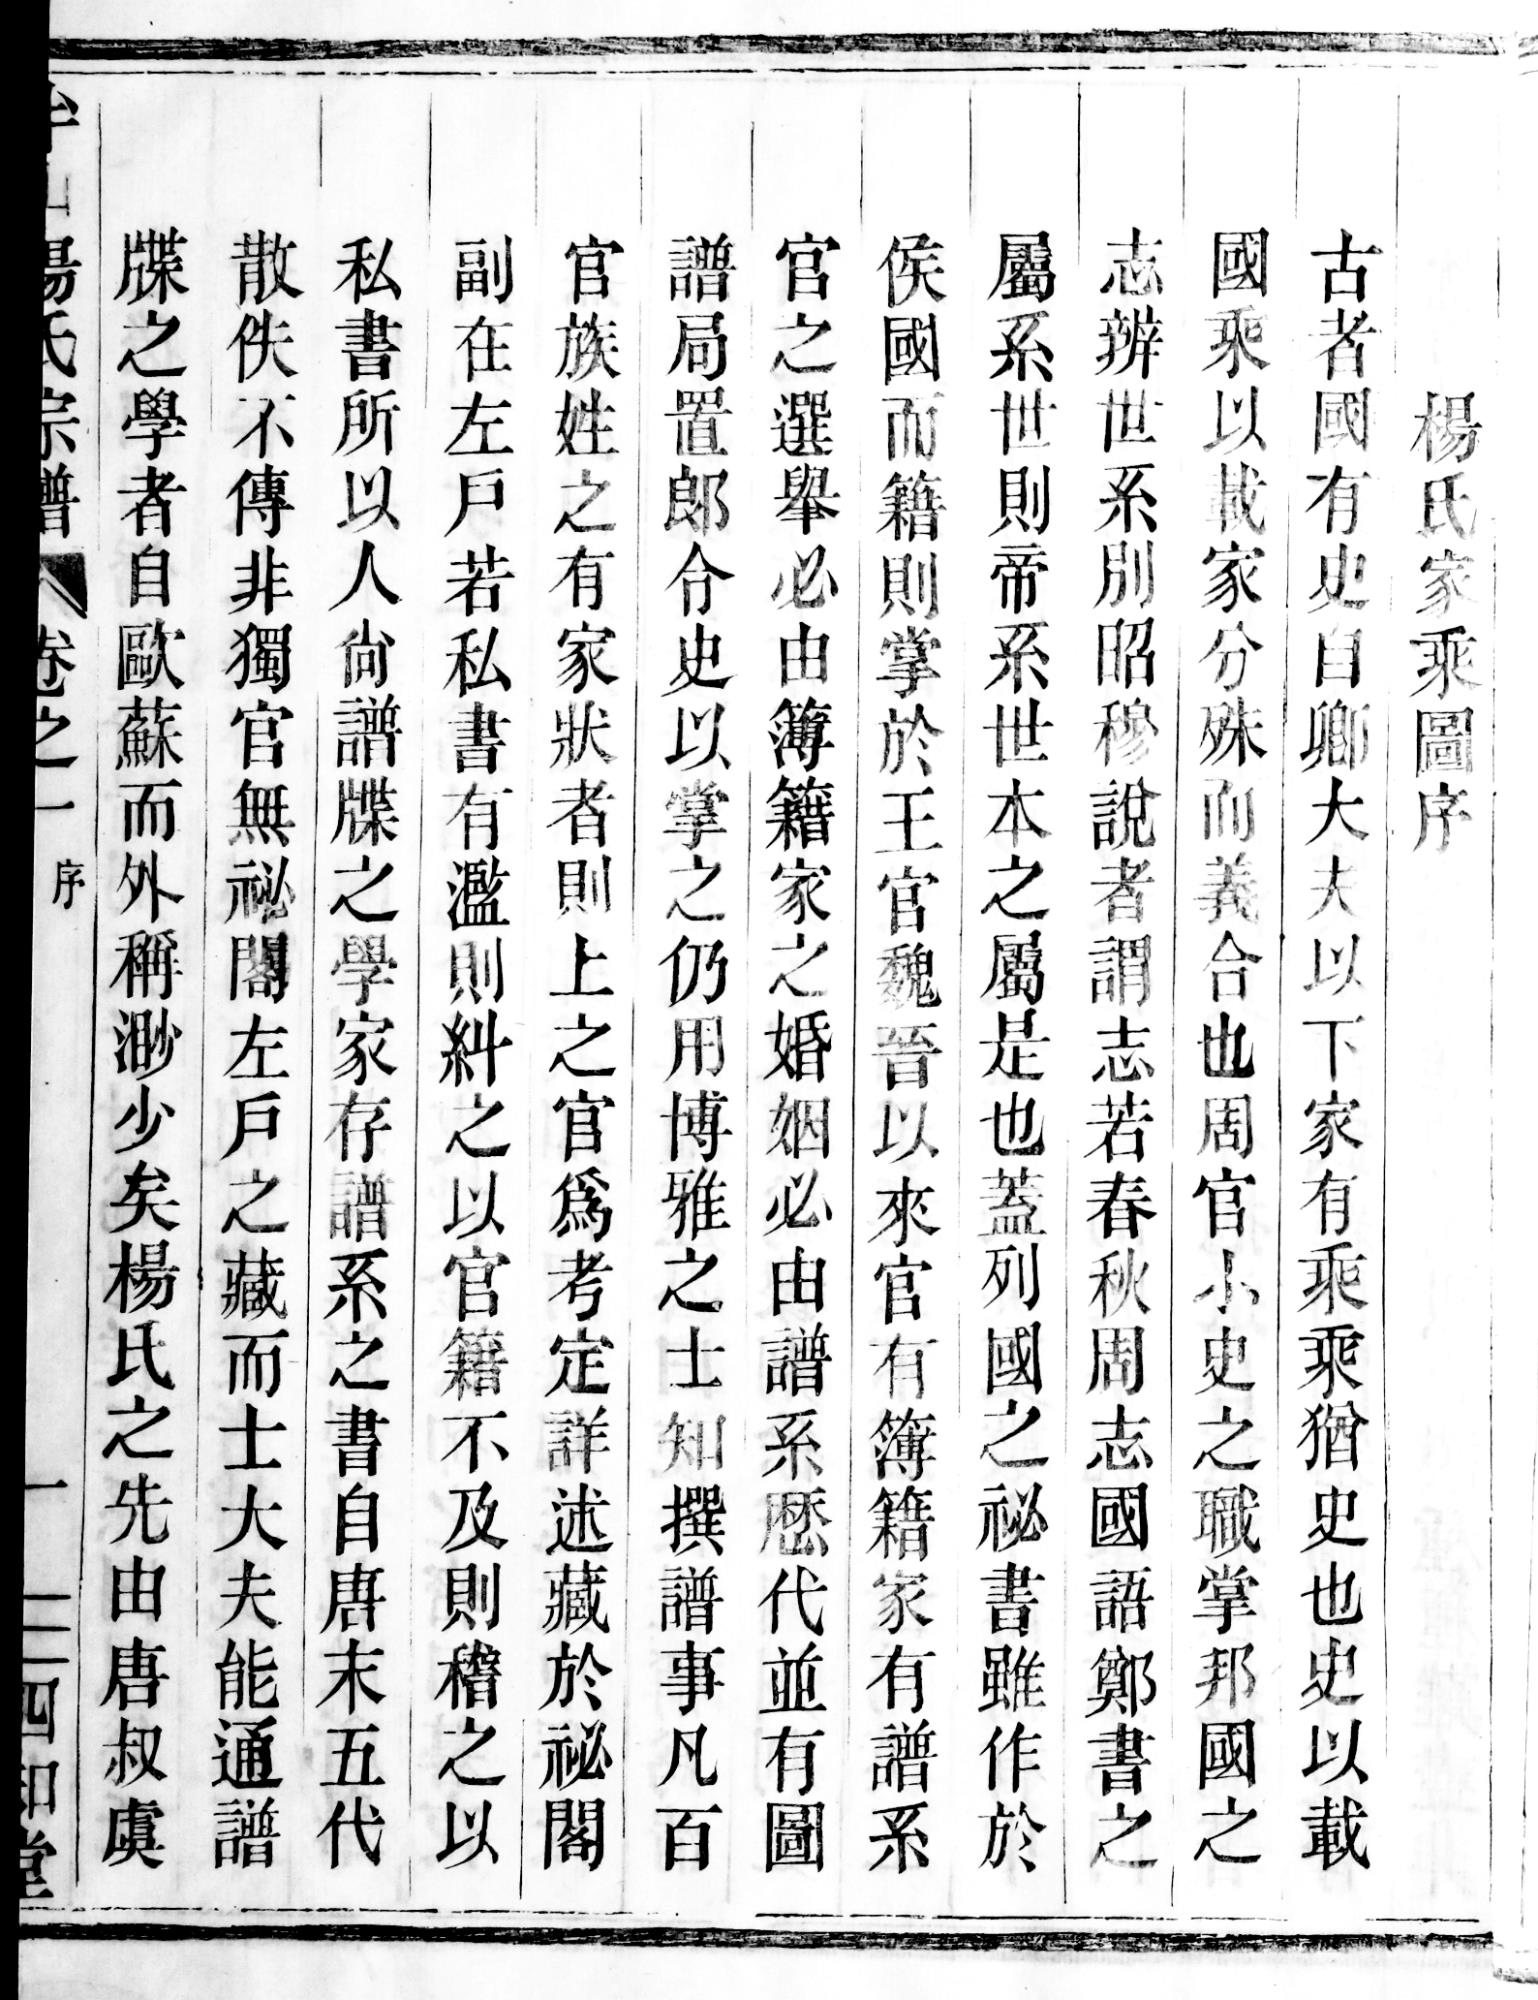 楊氏家乘圖序
古者國有史自卿大夫以下家有乘乘猶史也史以載
國乘以載家分殊而義合也周官小史之職掌邦國之
志辨世系別昭穆說者謂志若春秋周志國語鄭書之
屬系世則帝系世本之屬是也蓋列國之祕書雖作於
侯國而籍則掌於王官魏晉以來官有簿籍家有譜系
官之選舉必由簿籍家之婚姻必由譜系歷代並有圖
譜局置郎令史以掌之仍用博雅之士知撰譜事凡百
官族姓之有家狀者則上之官爲考定詳述藏於祕閣
副在左戶若私書有濫則糾之以官籍不及則稽之以
私書所以人尙譜牒之學家存譜系之書自唐末五代
散佚不傳非獨官無祕閣左戶之藏而士大夫能通譜
牒之學者自歐蘇而外稱渺少矣楊氏之先由唐叔虞
楊氏宗譜 卷之一 序 一 四知堂